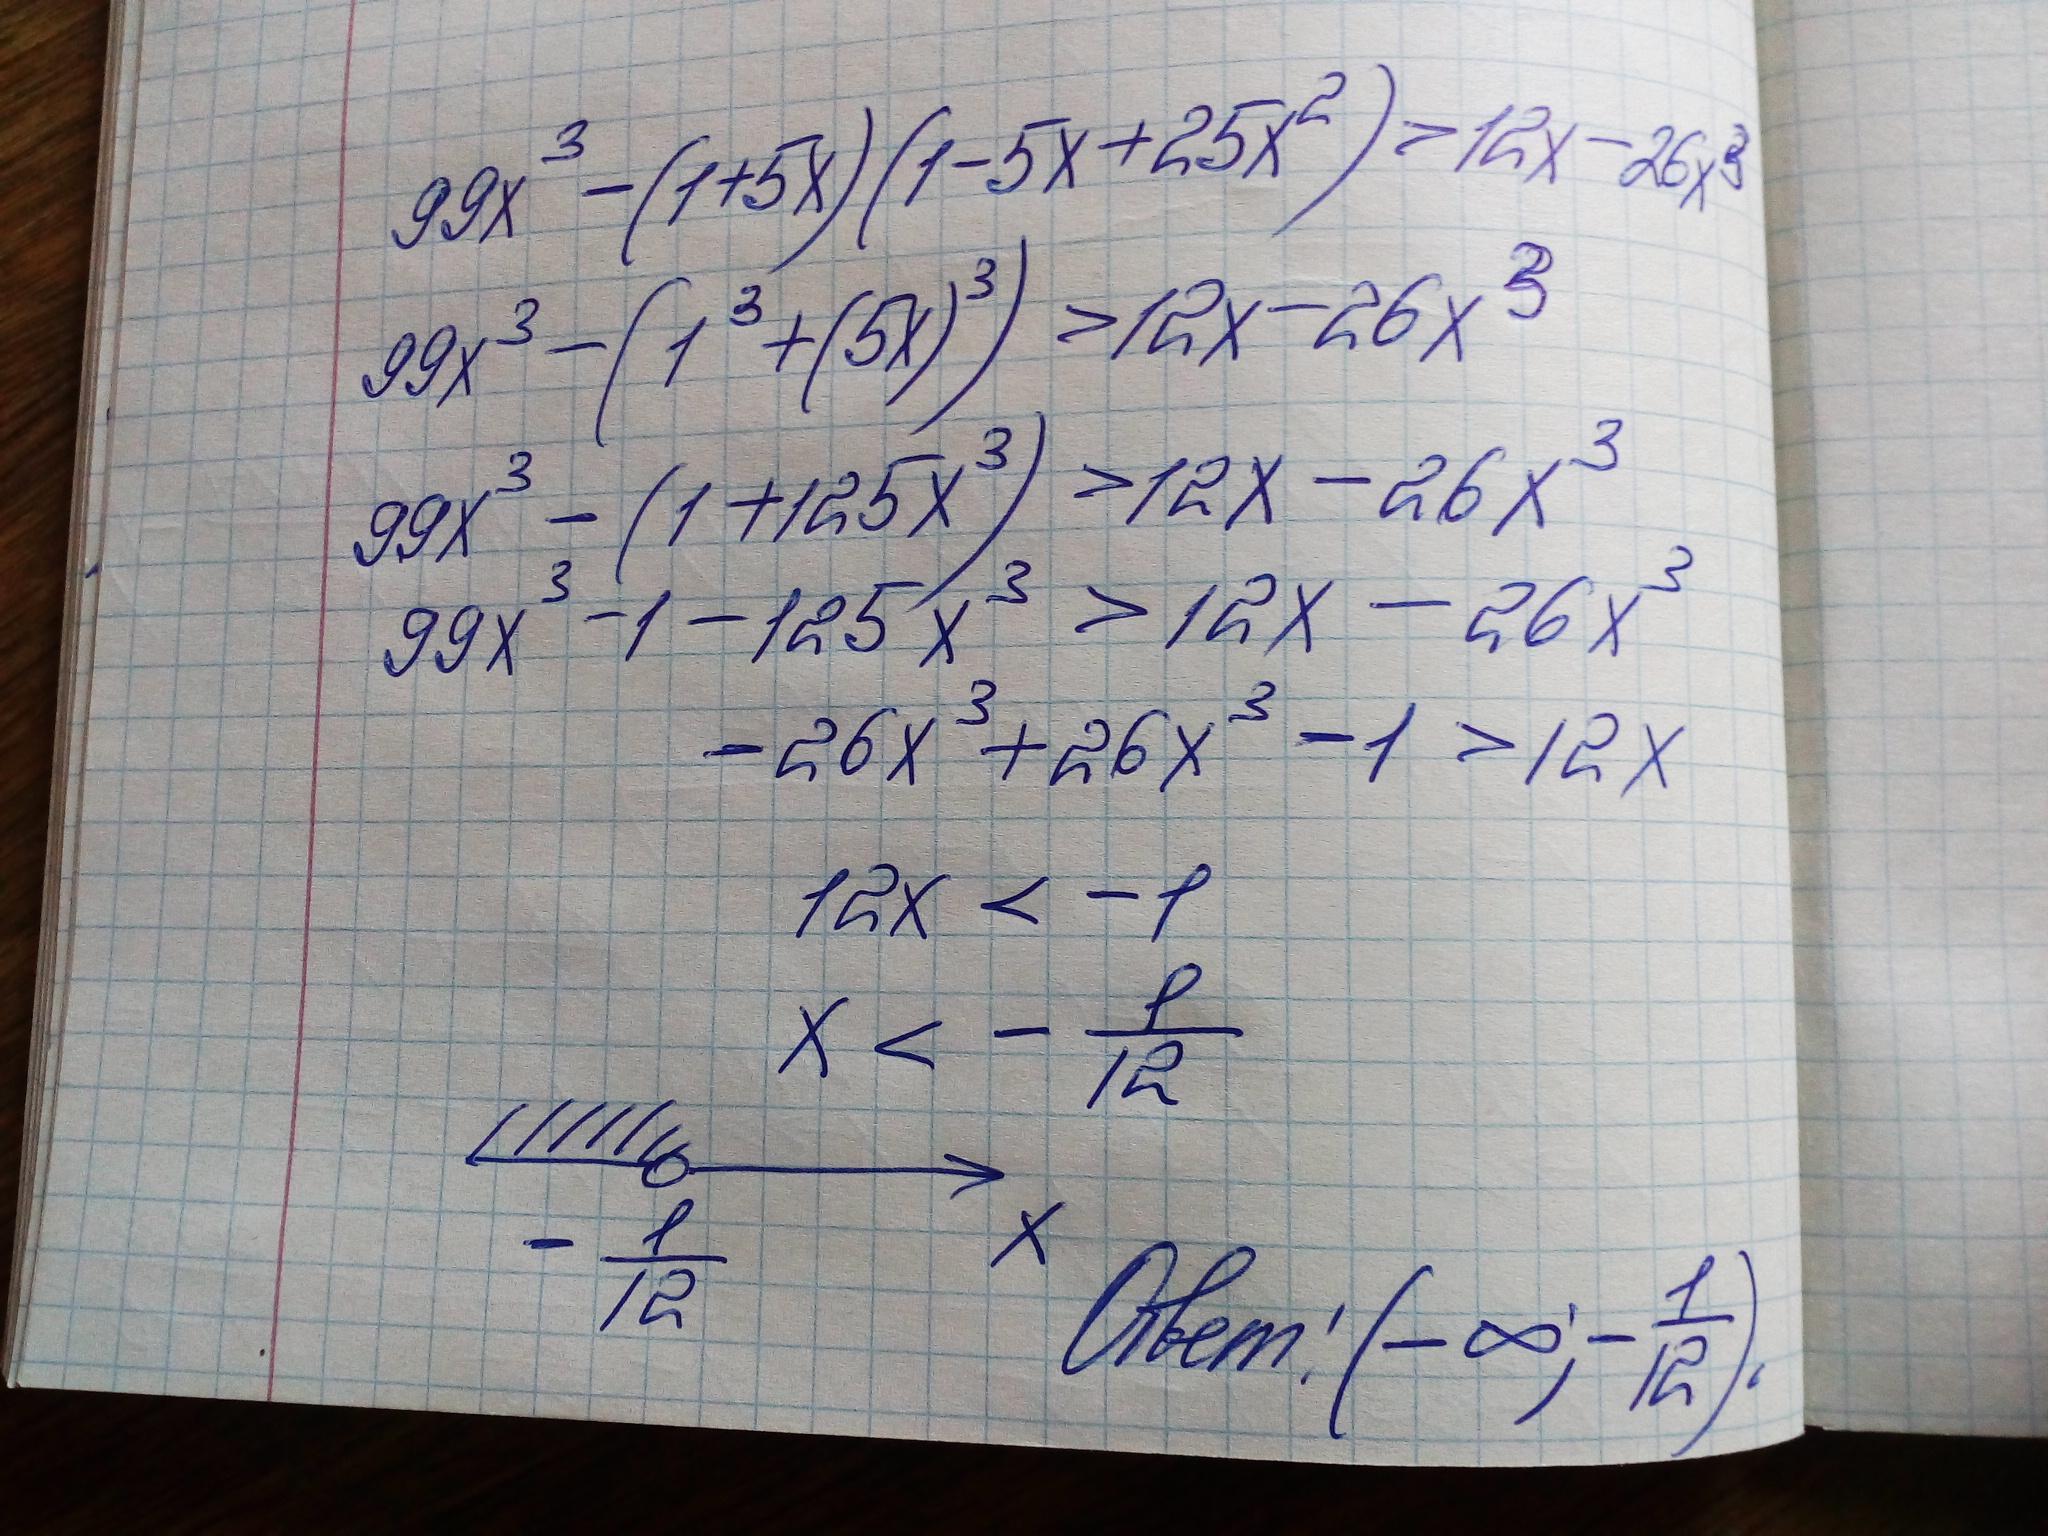 99x³ - (1+5x)(1-5x+25x²) > 12x - 26x³
99x³ - (1³ + (5x)³) > 12x - 26x³
99x³ - (1 + 125x³) > 12x - 26x³
99x³ - 1 - 125x³ > 12x - 26x³
-26x³ + 26x³ - 1 > 12x
12x < -1
x < - 1/12
- 1/12 x
Ответ: (-∞; - 1/12).